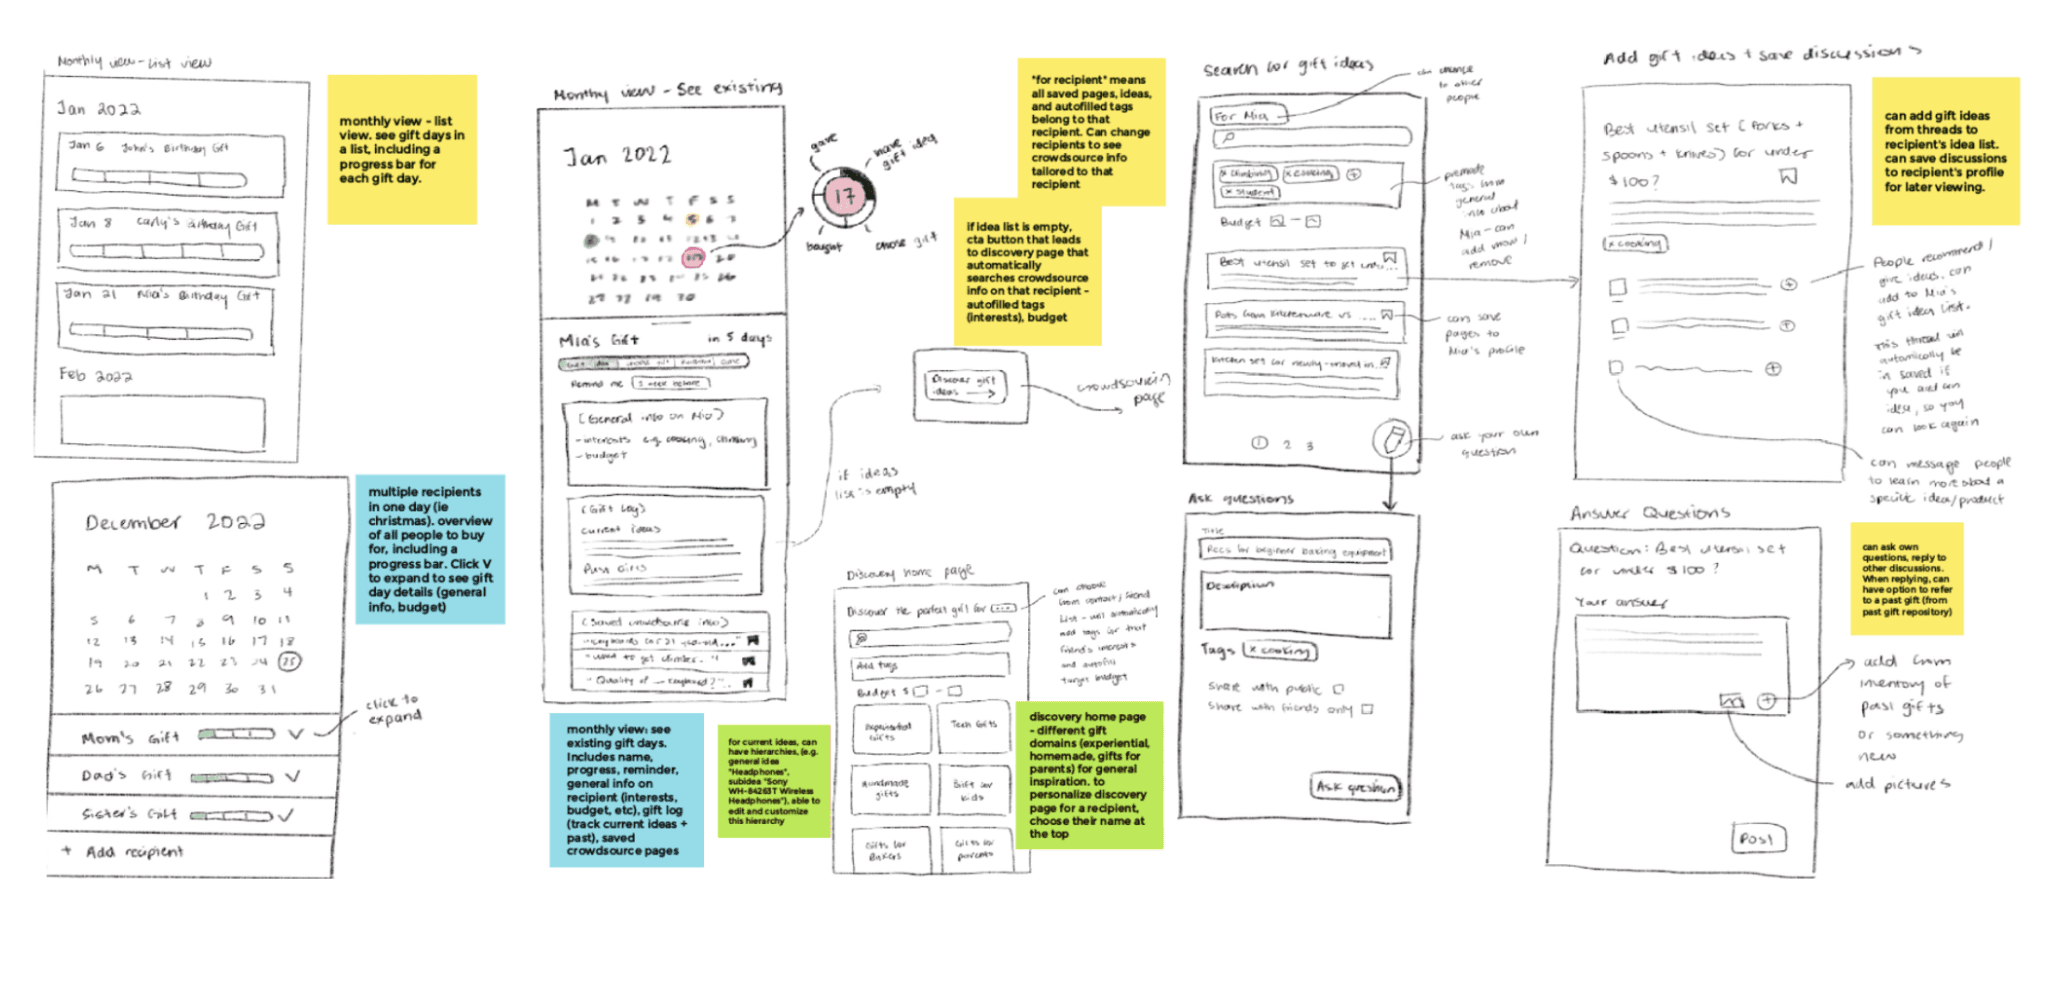 Monthly view - List view
Jan 2022
Jan 6 John's Birthday Gift
Jan 8 Carly's Birthday Gift
Jan 21 Mia's Birthday Gift
Feb 2022
monthly view - list
view. see gift days in
a list, including a
progress bar for
each gift day.
December 2022
M T W T F S S
1 2 3 4
5 6 7 8 9 10 11
12 13 14 15 16 17 18
19 20 21 22 23 24 25
26 27 28 29 30 31
click to
expand
Mom's Gift
Dad's Gift
Sister's Gift
+ Add recipient
multiple recipients
in one day (ie
christmas). overview
of all people to buy
for, including a
progress bar. Click V
to expand to see gift
day details (general
info, budget)
Monthly view - See existing
Jan 2022
M T W T F S S
gave
have
gift idea
17
bought
chose gift
Mia's Gift in 5 days
Remind me 1 week before
(General info on Mia)
- interests e.g. cooking, climbing
- budget
(Gift Log)
Current ideas
Past Gifts
(Saved crowdsource info)
"Keyboards for 21 year-old..."
"Want to get climber.. "
"Quality of — keyboard?"..
if ideas
list is empty
monthly view: see
existing gift days.
Includes name,
progress, reminder,
general info on
recipient (interests,
budget, etc), gift log
(track current ideas +
past), saved
crowdsource pages
for current ideas, can
have hierarchies, (e.g.
general idea
"Headphones",
subidea "Sony
WH-84263T Wireless
Headphones"), able to
edit and customize
this hierarchy
"for recipient" means
all saved pages, ideas,
and autofilled tags
belong to that
recipient. Can change
recipients to see
crowdsource info
tailored to that
recipient
if idea list is empty,
cta button that leads
to discovery page that
automatically
searches crowdsource
info on that recipient -
autofilled tags
(interests), budget
Discover gift
ideas
crowdsourcin
page
Discovery home page
Discover the perfect gift for ...
Add tags
Budget $ -
Experiential
Gifts
Tech Gifts
Handmade
gifts
Gift for
kids
Gifts for
Bakers
Gifts for
parents
can choose
from contact/friend
list - will automatically
add tags for that
friend's interests
and autofill
target budget
discovery home page
- different gift
domains (experiential,
homemade, gifts for
parents) for general
inspiration. to
personalize discovery
page for a recipient,
choose their name at
the top
Search for gift ideas
can change
to other
people
For Mia
x climbing x cooking +
x student
Budget -
premade
tags from
general
info about
Mia - can
add more /
remove
Best utensil set to get und...
Pots from Kitchenware vs ....
Kitchen set for newly-moved in..
can save
pages to
Mia's profile
1 2 3
ask your own
question
Ask questions
Title
Recs for beginner baking equipment
Description
Tags x cooking
share with public
share with friends only
Ask question
Add gift ideas + save discussions
Best utensil set (forks +
spoons + knives) for under
$100?
x cooking
can add gift ideas
from threads to
recipient's idea list.
can save discussions
to recipient's profile
for later viewing.
People recommend /
give ideas, can
add to Mia's
gift ideas list.
This thread will
automically be
in saved if
you add an
idea, so you
can look again
can message people
to learn more about a
specific idea/product
Answer Questions
Question: Best utensil set
for under $100?
Your answer
Post
can ask own
questions, reply to
other discussions.
When replying, can
have option to refer
to a past gift (from
past gift repository)
add from
inventory of
past gifts
or something
new
add pictures